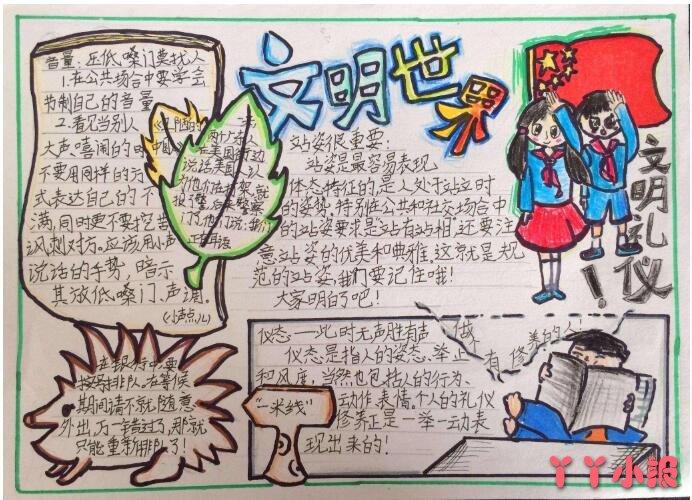 文明世界
音量：压低嗓门莫找人
1.在公共场合中要学会
节制自己的音量
2.看见当别人
大声喧闹的时
不要用同样的方
式表达自己的不
满，同时更不要挖苦
讽刺对方。应该用小声
说话的手势，暗示
其放低嗓门、声调。
(小声点儿)
说话美国人以
正在说话
站姿很重要：
站姿是最容易表现
体态特征的是人处于站立时
的姿势。特别在公共和社交场合中
的站姿要求是“站有站相”，还要注
意站姿的优美和典雅，这就是规
范的站姿，我们要记住哦！
大家明白了吧！
文明礼仪！
在银行中要
按号排队，在等候
期间请不就随意
外出，万一等过了，那就
只能重新排队了！
“一米线”
仪态——此时无声胜有声
仪态是指人的姿态、举止
和风度，当然也包括人的行为、
动作表情。个人的礼仪
修养正是一举一动表
现出来的！
做
有修养的人
丫丫小报